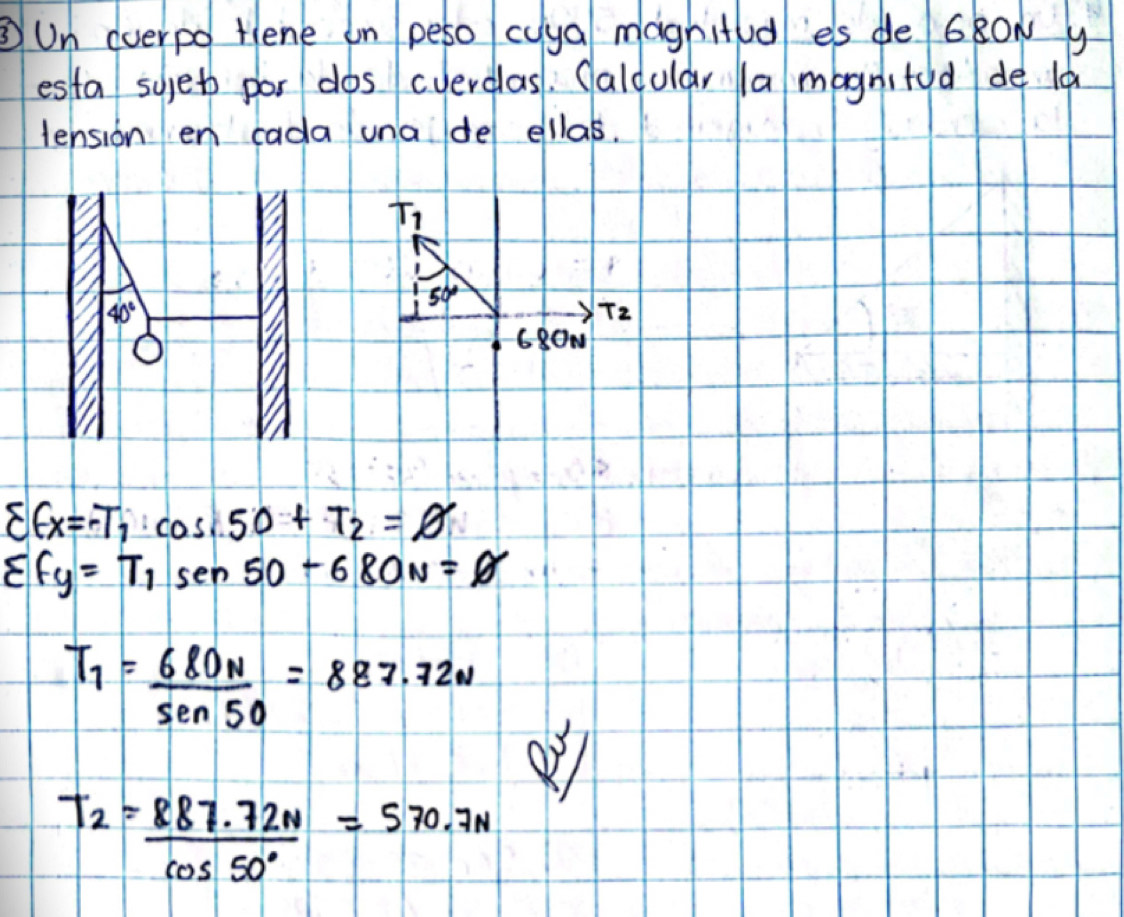 ③ Un cuerpo tiene un peso cuya magnitud es de 680N y
esta sujeto por dos cuerdas. Calcular la magnitud de la
tensión en cada una de ellas.
40°
T1
50°
T2
680N
Σfx=-T1 cos 50 + T2 = 0
Σfy= T1 sen 50 - 680N = 0
T1 = 680N / sen 50 = 887.72N
T2 = 887.72N / cos 50° = 570.7N